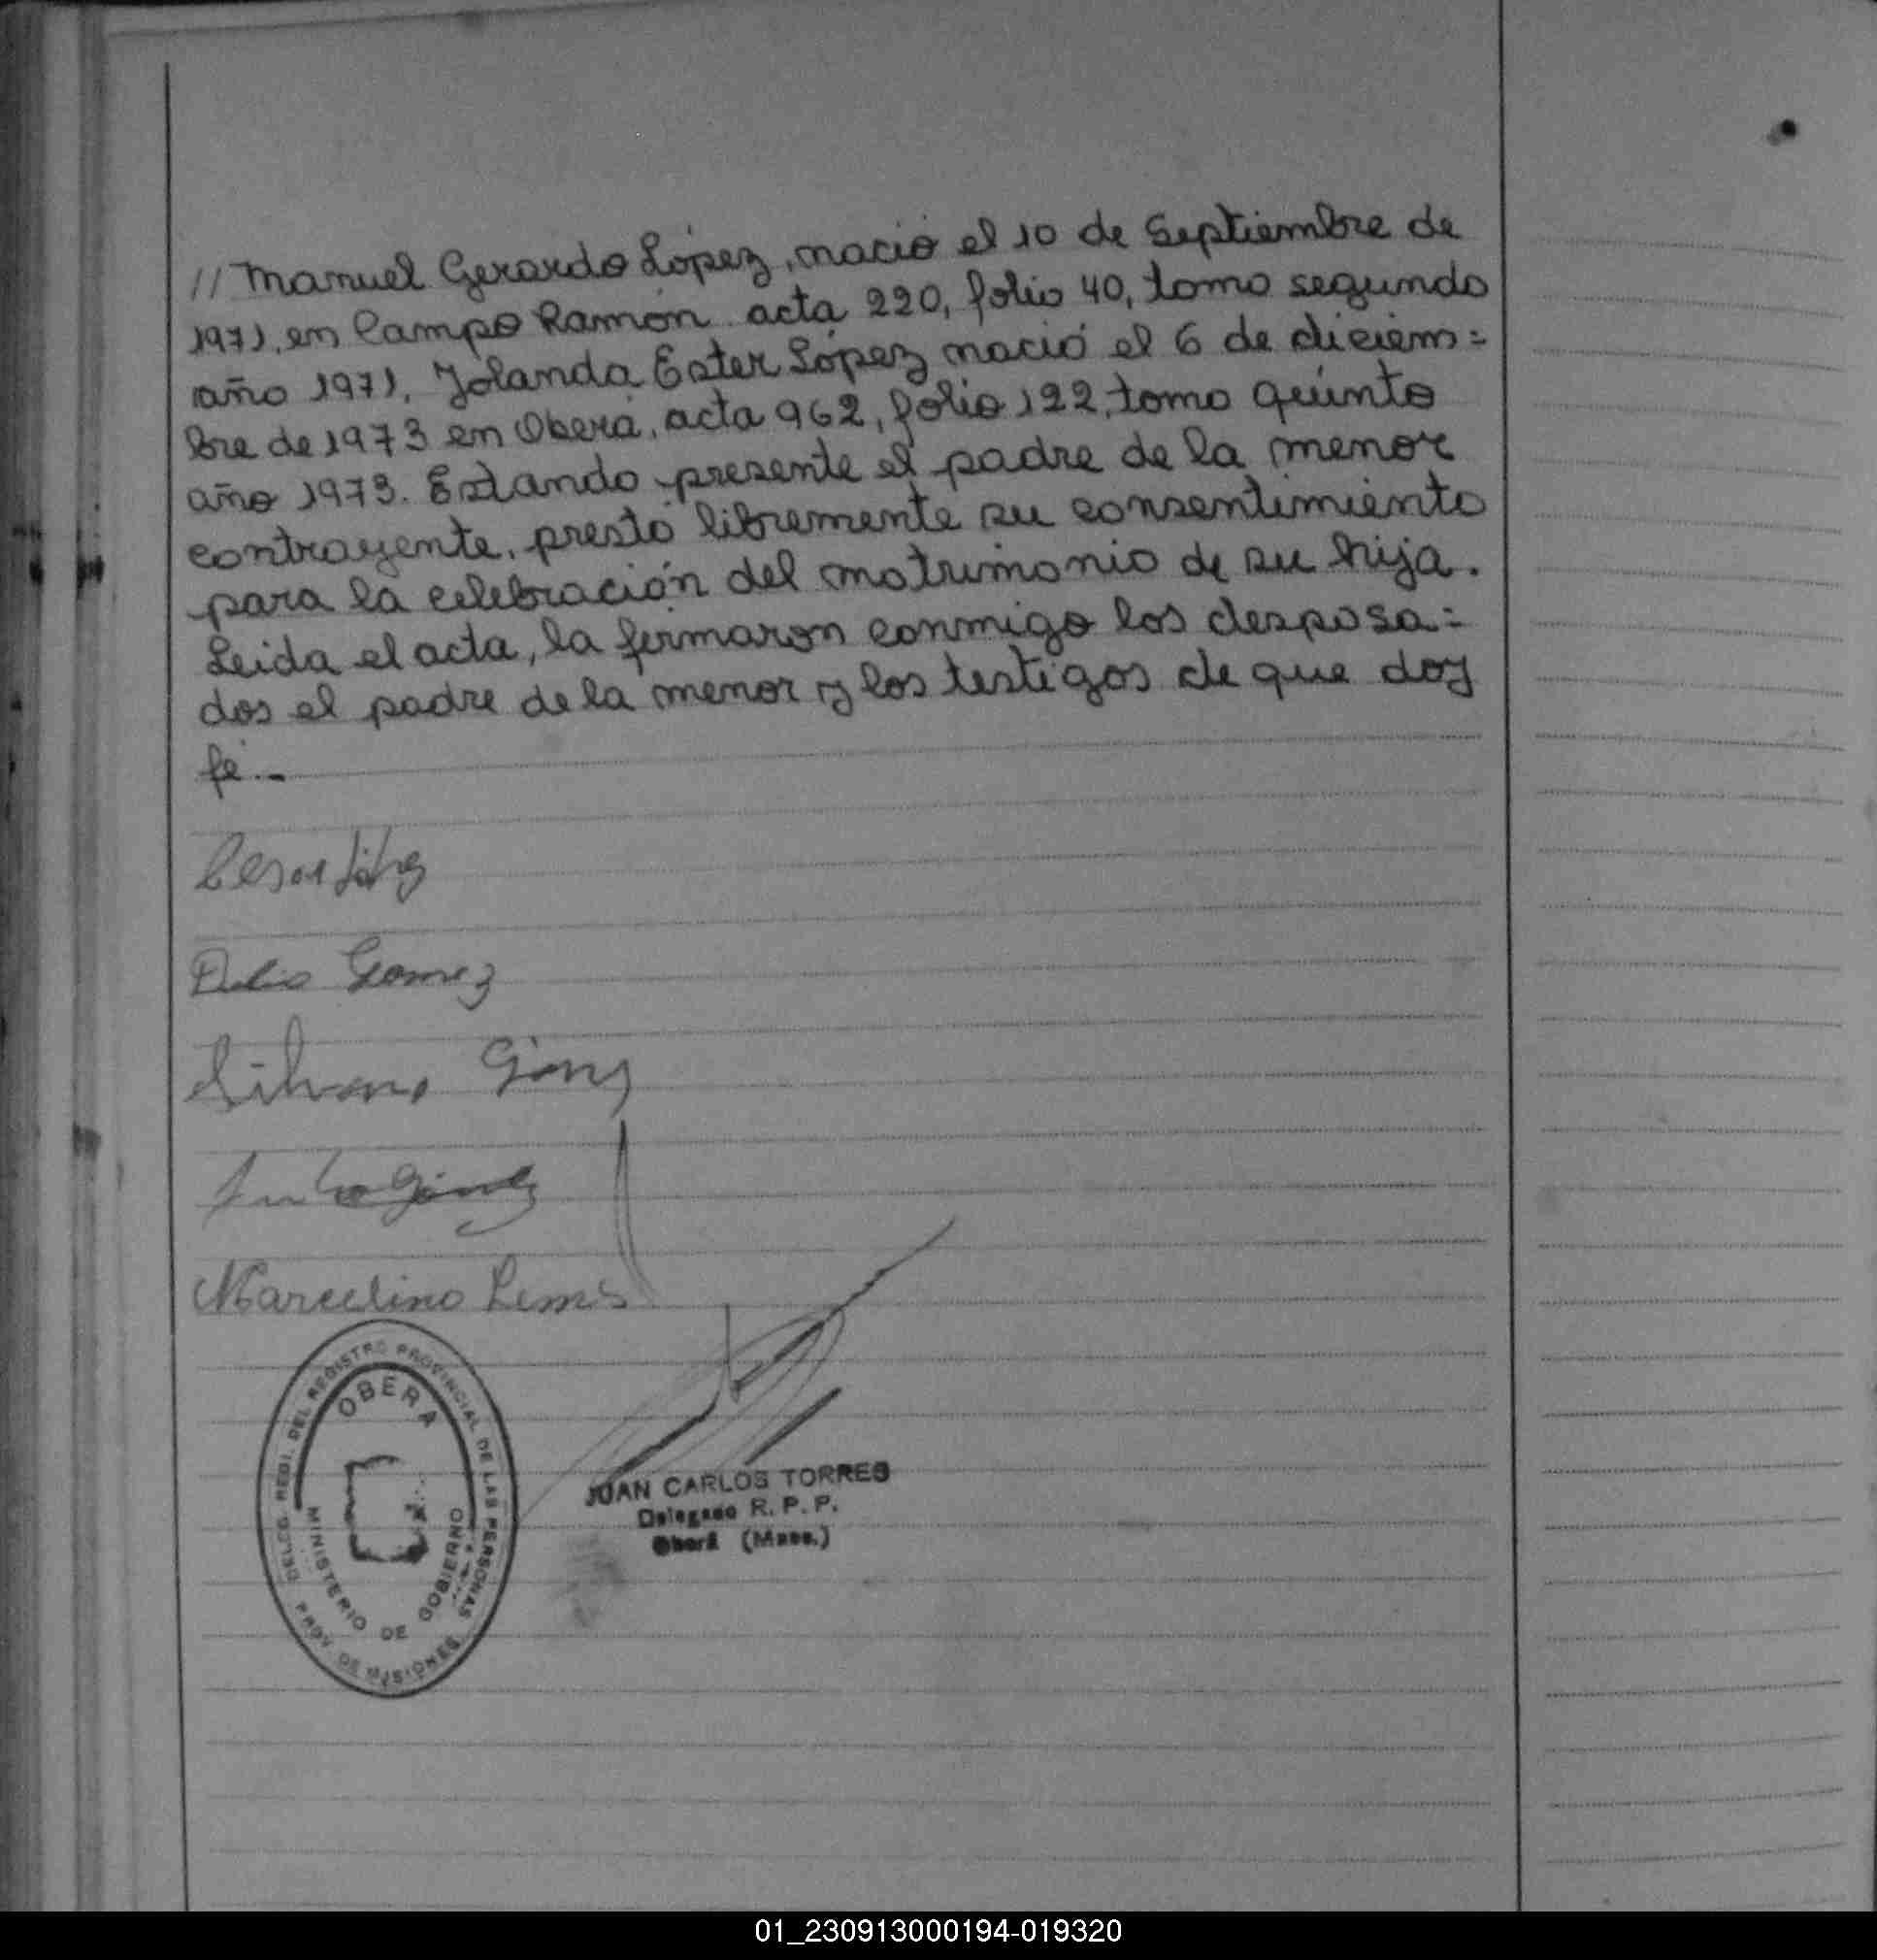 // Manuel Gerardo López, nació el 10 de Septiembre de
1971, en Campo Ramón acta 220, folio 40, tomo segundo
año 1971, Yolanda Ester López nació el 6 de diciem=
bre de 1973 en Oberá, acta 962, folio 122, tomo quinto
año 1973. Estando presente el padre de la menor
contrayente, prestó libremente su consentimiento
para la celebración del matrimonio de su hija.
Leida el acta, la firmaron conmigo los desposa=
dos el padre de la menor y los testigos de que doy
fé.-
Cesar López
Gomez
Marcelino Lemes
DELEG. REGI. DEL REGISTRO PROVINCIAL DE LAS PERSONAS
OBERA
MINISTERIO DE GOBIERNO
PROV. DE MISIONES
JUAN CARLOS TORRES
Delegado R. P. P.
Oberá (Mnes.)
01_230913000194-019320